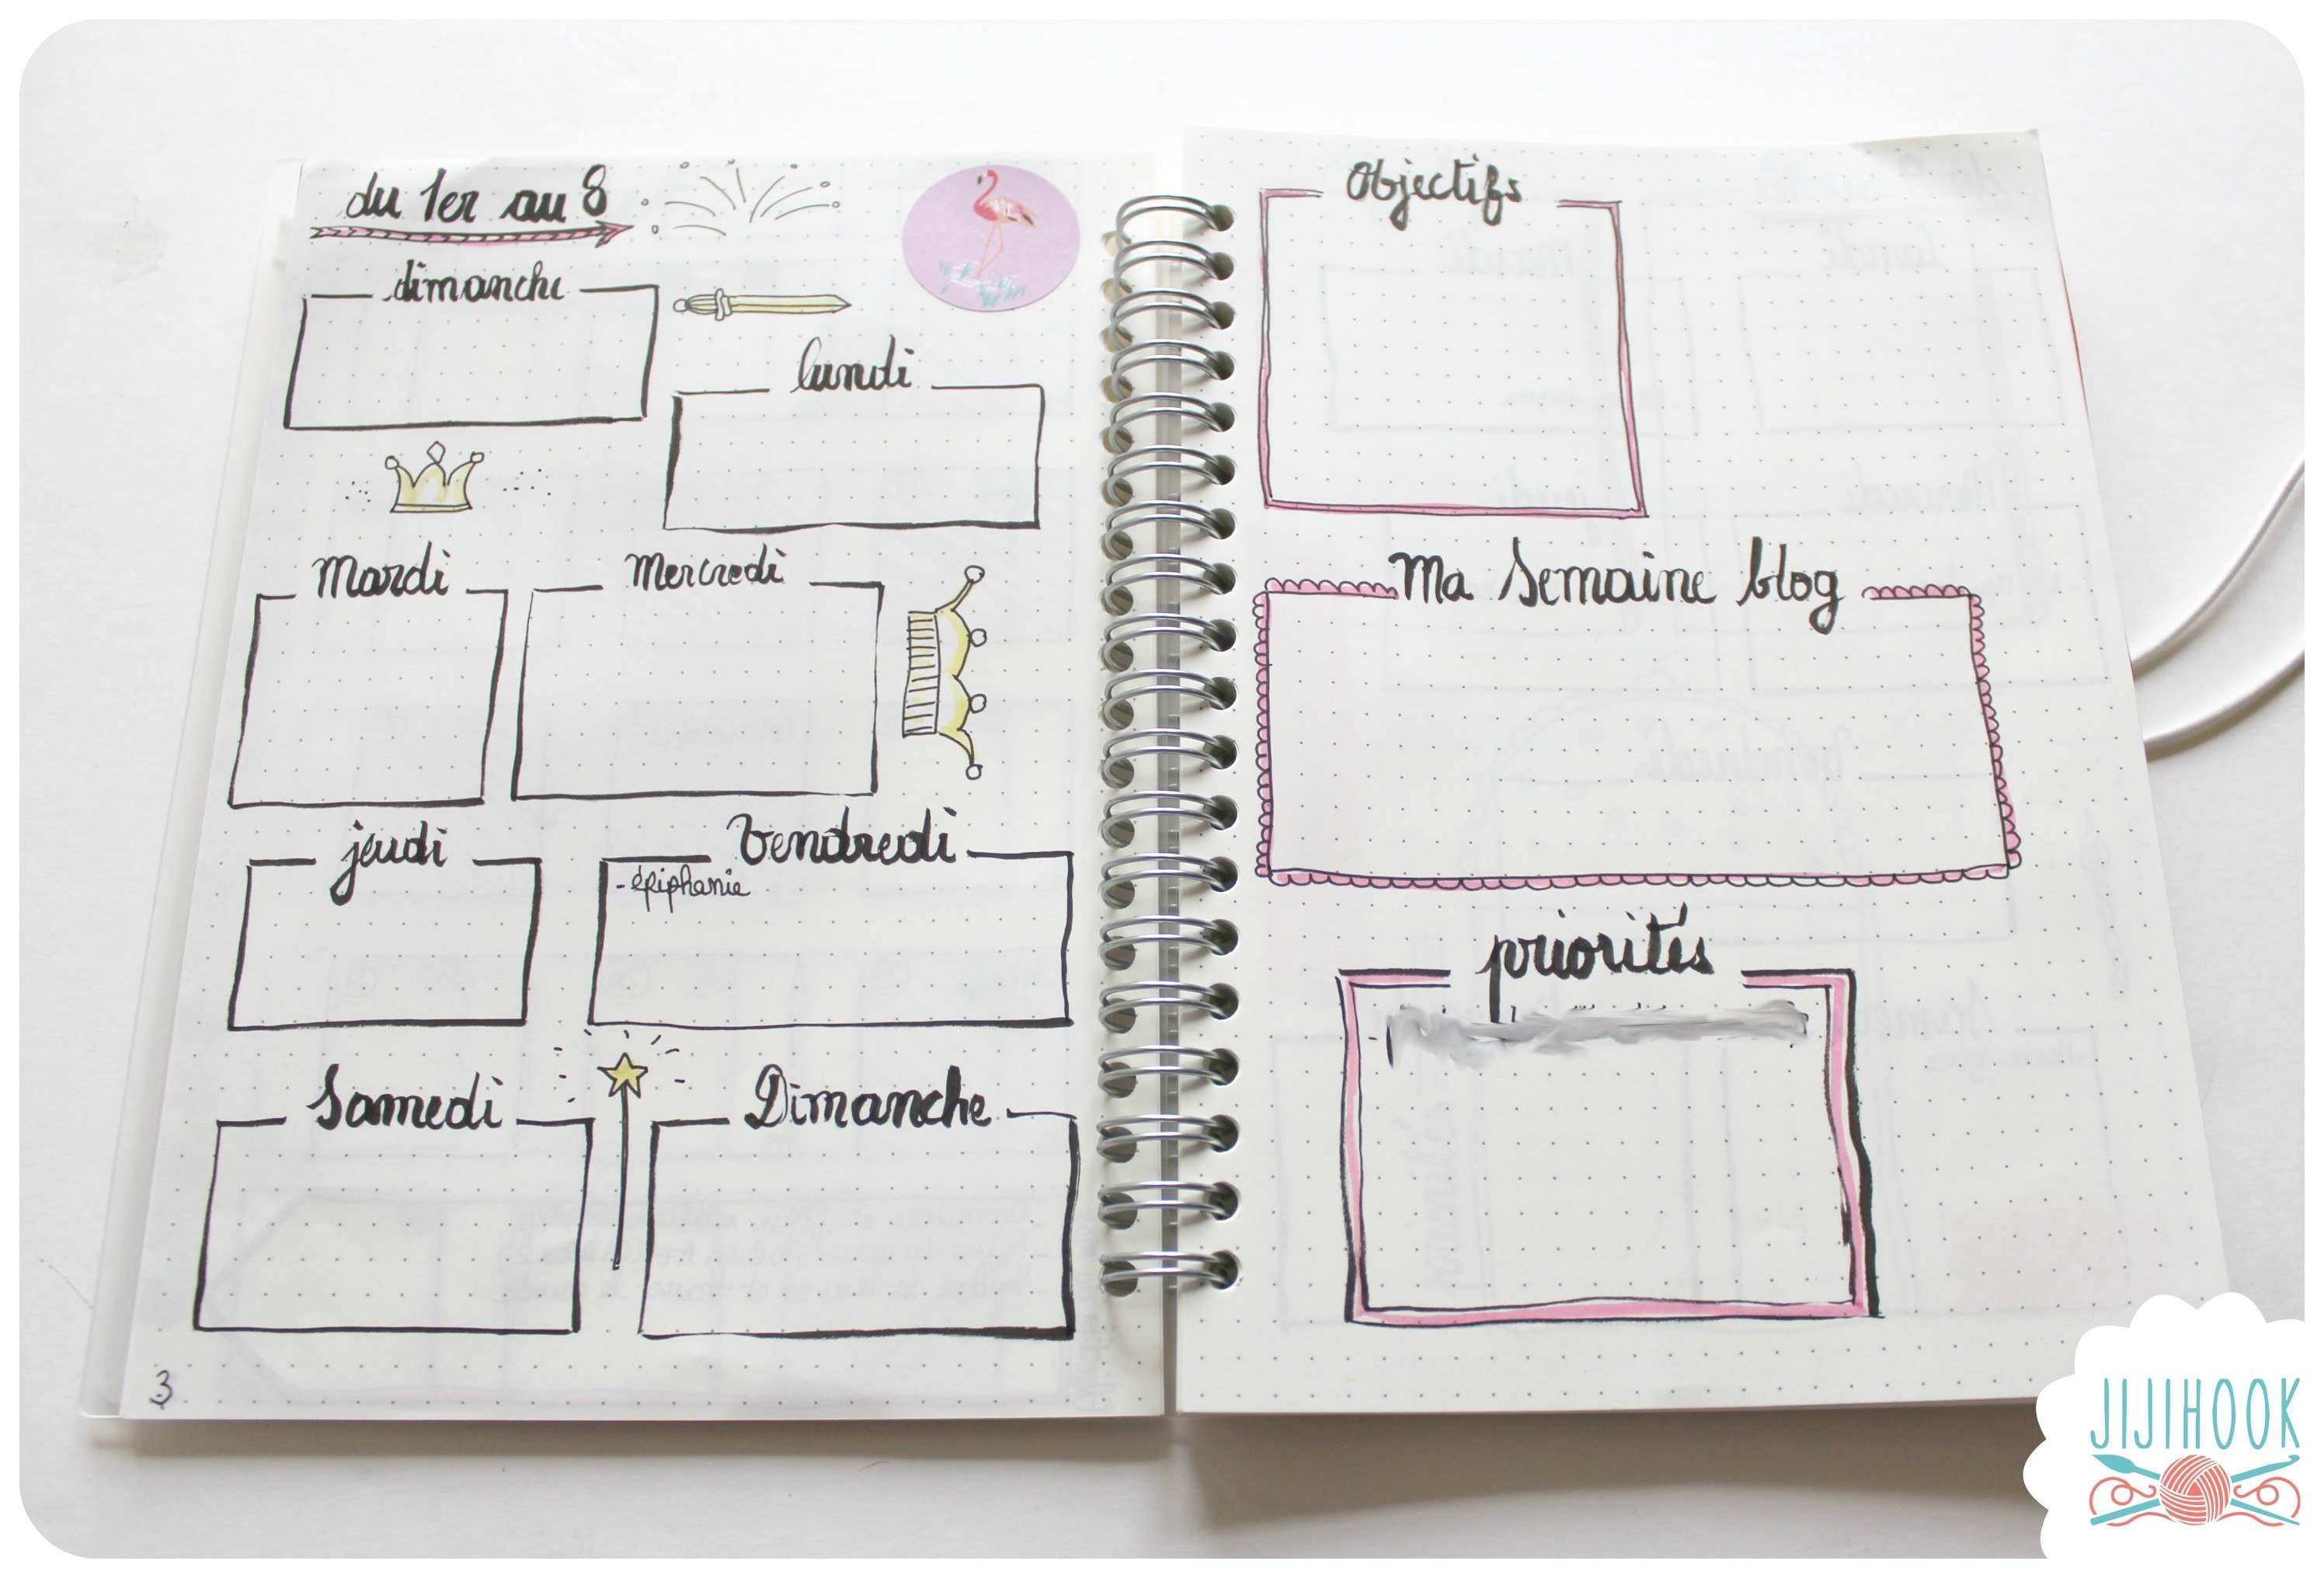 du 1er au 8
dimanche
lundi
Mardi
Mercredi
jeudi
Vendredi
-épiphanie
Samedi
Dimanche
3
Objectifs
Ma Semaine blog
priorités
JIJIHOOK